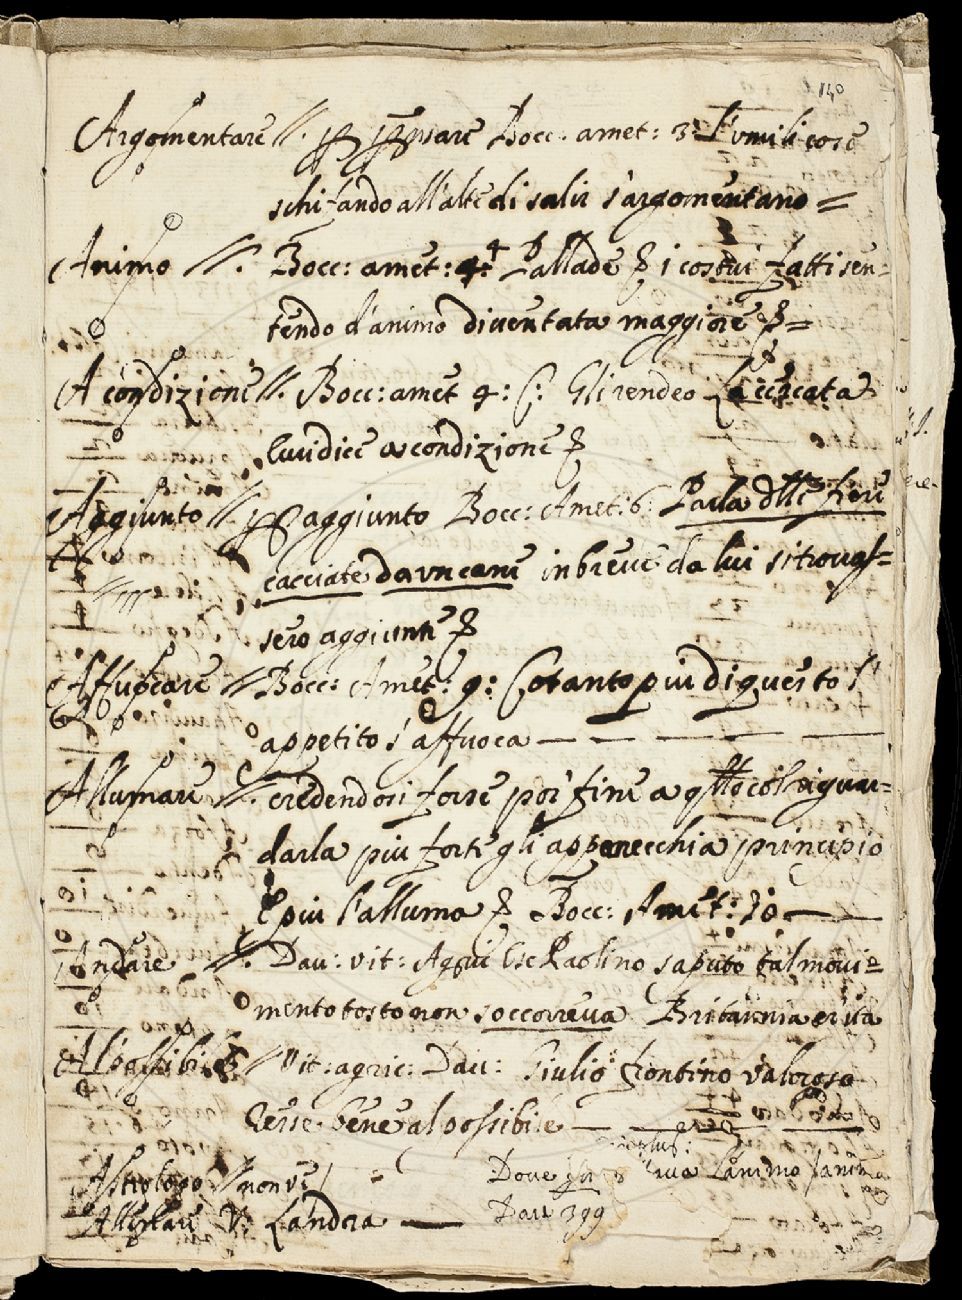 140
Argomentare //. Bocc: amet: 3: l'umili cose
schifando all'alte di salir s'argomentano =
Animo //. Bocc: amet: 4: Pallade i costui fatti sen=
tendo d'animo diventata maggiore =
A condizione //. Bocc: amet 4: Gli rendeo l'accecata
luce a condizione
Aggiunto // aggiunto Bocc: Amet: 6: Parla delle fiere
cacciate da un cane in breve da lui si trovas=
sero aggiunte
Affuocare // Bocc: Amet: 9: Cotanto piu di questo l'
appetito s'affuoca —
Allumare //. credendosi forse por fine a questo col riguar=
darla piu forte gli apparecchia principio
E piu l'alluma Bocc: Amet: 10 —
Andare //. Dav: vit: Agric E se Paolino saputo tal movi=
mento tosto non soccorreva Britannia er ita
Al possibile // Vit: agric: Dav: Giulio Frontino valoroso
resse bene al possibile —
Astrologo // non vi
Dove l'animo
Allettare V: Landra —
Dav 399